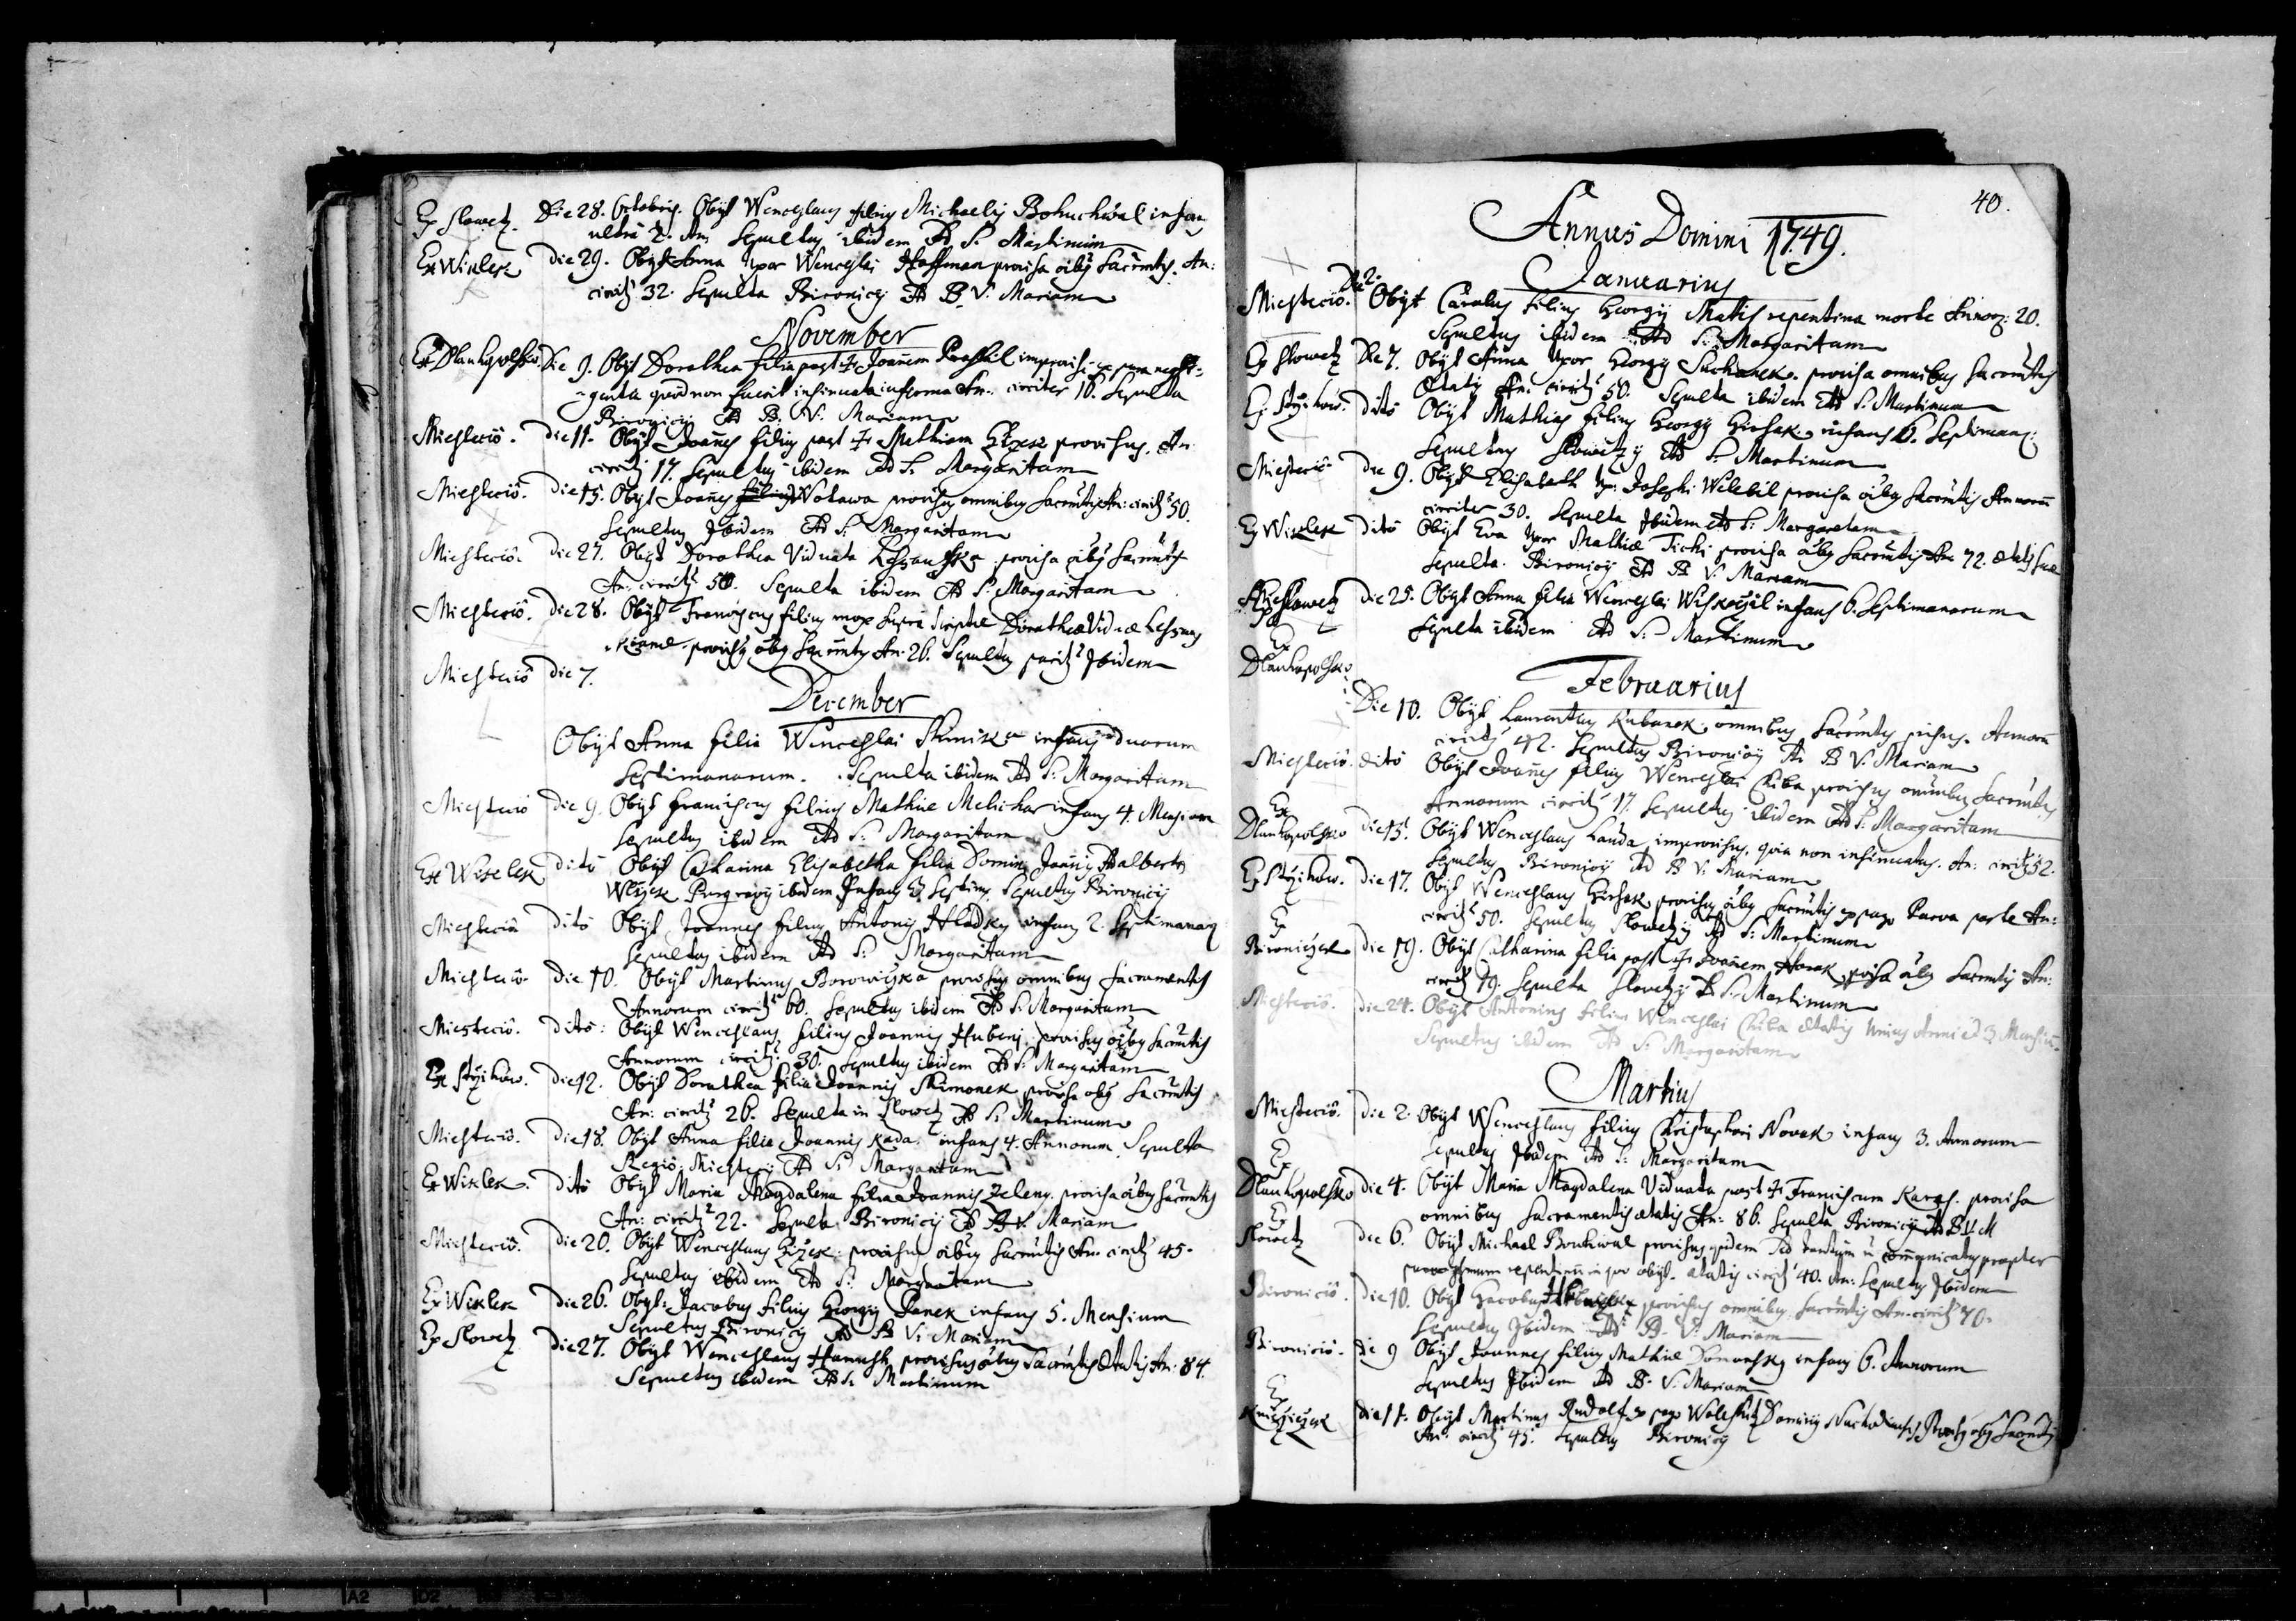 Ex Slowetz. Die 28. Octobris. Obijt Wenceslaus filius Michaelis Bohuchwal infans
ultra 2. An: Sepultus ibidem Ad S. Martinum
Ex Wixlek die 29. Obijt Anna Uxor Wenceslai Hoffman provisa oibus Sacrmtis. An:
circitr 32. Sepulta Bironicij Ad B. V. Mariam
November
Ex Dlauhopolsko. Die 9. Obijt Dorothea filia post Joannem improvisa ex pura negli=
=gentia quod non fuerit insinuata infirma An: circiter 16. Sepulta
Bironicij Ad B. V. Mariam
Miestecio. die 11. Obijt Joannes filius post Mathiam Gizek provisus. An:
circitr 17. Sepultus ibidem Ad S. Margaritam
Miestecio. die 15. Obijt Joannes filius Wotawa provisus omnibus Sacrmtis An: circitr 50.
Sepultus Ibidem Ad S. Margaritam
Miestecio. die 27. Obijt Dorothea Vidua provisa oibus Sacrmtis
An: circitr 50. Sepulta ibidem Ad S. Margaritam
Miestecio. die 28. Obijt Franciscus filius mox supra scriptae Dorotheae Viduae
provisus oibus Sacrmtis An: 26. Sepultus paritr Ibidem
Miestecio die 7.
December
Obijt Anna filia Wenceslai infans duarum
Septimanarum. Sepulta ibidem Ad S. Margaritam
Miestecio die 9. Obijt Franciscus filius Mathiae Melichar infans 4. Mensium
Sepultus ibidem Ad S. Margaritam
Ex Wixlek dito Obijt Catharina Elisabetha filia Domini Joannis Adalberti
Wlczek ibidem Infans 3. Septim. Sepulta Bironicij
Miestecio dito Obijt Joannes filius Antonij Hladky infans 2. Septimanar
Sepultus ibidem Ad S. Margaritam
Miestecio. die 10. Obijt Martinus Borowiczka provisus omnibus Sacramentis
Annorum circitr 60. Sepultus ibidem Ad S. Margaritam
Miestecio. dito: Obijt Wenceslaus filius Joannis Hubeny provisus oibus Sacrmtis
Annorum circitr 30. Sepultus ibidem Ad S. Margaritam
Ex Styikow. die 12. Obijt Dorothea filia Joannis Simonek provisa oibus Sacrmtis
An: circitr 26. Sepulta in Slowetz Ad S. Martinum
Miestecio. die 18. Obijt Anna filia Joannis Kada infans 4. Annorum Sepulta
Regio Miestecij Ad S. Margaritam
Ex Wixlek. dito Obijt Maria Magdalena filia Joannis Zeleny provisa oibus Sacrmtis
An: circitr 22. Sepulta Bironicij Ad B. V. Mariam
Miestecio. die 20. Obijt Wenceslaus Gizek provisus oibus Sacrmtis An: circitr 45.
Sepultus ibidem Ad S. Margaritam
Ex Wixlek die 26. Obijt Jacobus filius Georgij Panek infans 5. Mensium
Sepultus Bironicij Ad B. V. Mariam
Ex Slowetz die 27. Obijt Wenceslaus Hanush provisus oibus Sacrmtis Aetatis An: 84.
Sepultus ibidem Ad S. Martinum
40.
Annus Domini 1749.
Januarius
Miestecio. Die 2. Obijt Carolus filius Georgij Matis repentina morte Annor: 20.
Sepultus ibidem Ad S. Margaritam
Ex Slowetz Die 7. Obijt Anna Uxor Georgij Suchanek. provisa omnibus Sacrmtis
Aetatis An: circitr 50. Sepulta ibidem Ad S. Martinum
Ex Styikow. dito Obijt Mathias filius Georgij Girsak. infans 6. Septimanar:
Sepultus Slowetzij Ad S. Martinum
Miestecio. die 9. Obijt Elisabeth Ux: Josephi Welebil provisa oibus Sacrmtis Annorum
circiter 30. Sepulta Ibidem Ad S. Margaretam
Ex Wixlek dito Obijt Eva Uxor Mathiae Tichi provisa oibus Sacrmtis An: 72. aetatis suae
Sepulta Bironicij Ad B. V. Mariam
Ex Slowetz die 25. Obijt Anna filia Wenceslai Wiskoczil infans 6. Septimanarum
Sepulta ibidem Ad S. Martinum
Ex
Dlauhopolsko.
Februarius
Die 10. Obijt Laurentius Kubanek omnibus Sacrmtis provisus. Annorum
circitr 42. Sepultus Bironicij Ad B. V. Mariam
Miestecio. dito Obijt Joannes filius Wenceslai Chiba provisus omnibus Sacrmtis
Annorum circitr 17. Sepultus ibidem Ad S. Margaritam
Ex
Dlauhopolsko die 15. Obijt Wenceslaus Landa improvisus, quia non insinuatus. An: circitr 52.
Sepultus Bironicij Ad B. V. Mariam
Ex Styikow. die 17. Obijt Wenceslaus Girsak provisus oibus Sacrmtis ex pago Parva parte An:
circitr 50. Sepultus Slowetzij Ad S. Martinum
Ex
Bironiczek die 19. Obijt Catharina filia post Joannem Horak provisa oibus Sacrmtis An:
circitr 19. Sepulta Slowetzij Ad S. Martinum
Miestecio. die 24. Obijt Antonius filius Wenceslai Chiba aetatis Unius Anni et 3. Mensium.
Sepultus ibidem Ad S. Margaritam
Martius
Miestecio. die 2. Obijt Wenceslaus filius Christophori Nowak infans 3. Annorum
Sepultus Ibidem Ad S. Margaritam
Ex
Dlauhopolsko die 4. Obijt Maria Magdalena Viduata post Franciscum Karas. provisa
omnibus Sacramentis aetatis An: 86. Sepulta Bironicij Ad B V M
Ex
Slowetz die 6. Obijt Michael Bouchwal provisus quidem sed tantum communicatus propter
repentinum in quo obijt. aetatis circitr 40. An: Sepultus Ibidem
Bironicio. die 10. Obijt Jacobus provisus omnibus Sacrmtis An: circitr 70.
Sepultus Ibidem Ad B. V. Mariam
Bironicio. die 9 Obijt Joannes filius Mathiae Domansky infans 6. Annorum
Sepultus Ibidem Ad B. V. Mariam
Ex
Knieziczek die 11. Obijt Martinus Rudolf ex pago Woleshnitz Dominij oibus Sacrmtis
An: circitr 45. Sepultus Bironicij